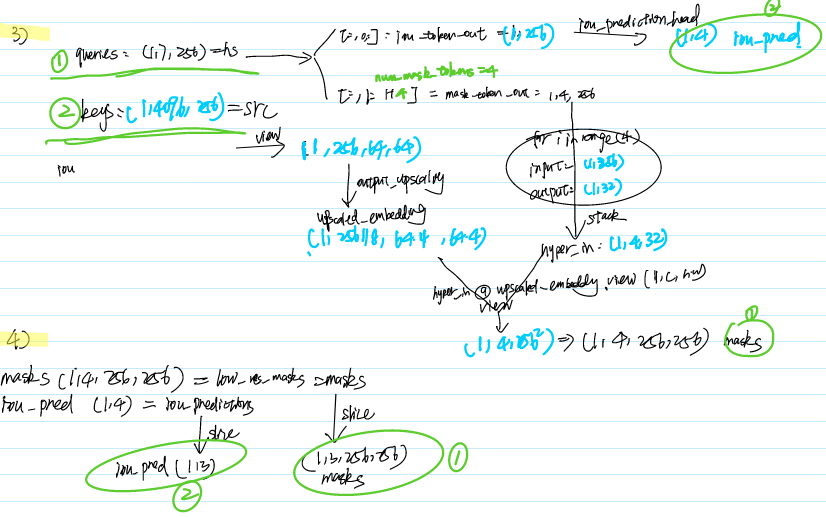 3)
① queries = (1,7,256) = hs
[:,0:] = iou_token_out = (1,256)
iou_prediction_head
(1,4) iou_pred
②
num_mask_tokens = 4
[:,1: 1+4] = mask_token_out = 1,4,256
② keys = (1,4096,256) = src
view
(1,256,64,64)
iou
for i in range(4)
input = (1,256)
output = (1,32)
output_upscaling
stack
upscaled_embedding
(1, 256//8, 64·4, 64·4)
hyper_in = (1,4,32)
hyper_in @ upscaled_embeddy.view(1,c,hw)
view
(1,4,256²) ⇒ (1,4,256,256) masks
①
4)
masks (1,4,256,256) = low_res_masks = masks
iou_pred (1,4) = iou_predictions
slice
slice
iou_pred (1,3)
②
(1,3,256,256)
masks
①